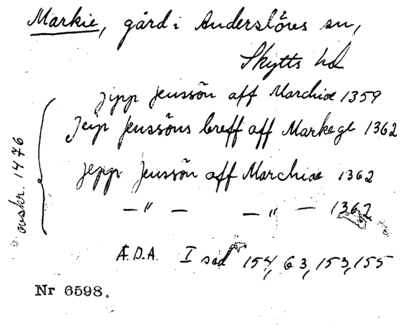 Markie, gård i Anderslövs sn,
Skytts hd
jipp jenssön aff Marchiæ 1359
Jeip jenssöns breff aff Markege 1362
jepp jenssön aff Marchiæ 1362
— " — — " — 1362
avskr. 1476
Æ.D.A. I sid 154, 63, 153, 155
Nr 6598.